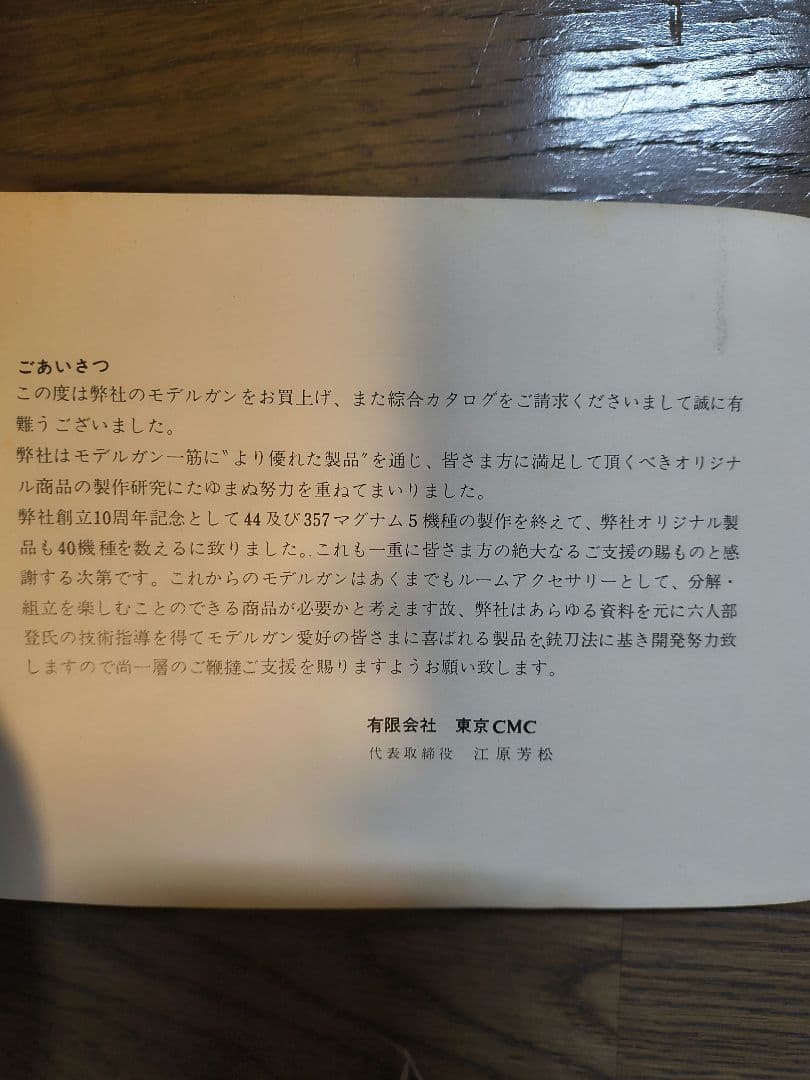 ごあいさつ
この度は弊社のモデルガンをお買上げ、また綜合カタログをご請求くださいまして誠に有
難うございました。
弊社はモデルガン一筋に〝より優れた製品〟を通じ、皆さま方に満足して頂くべきオリジナ
ル商品の製作研究にたゆまぬ努力を重ねてまいりました。
弊社創立10周年記念として44及び357マグナム5機種の製作を終えて、弊社オリジナル製
品も40機種を数えるに致りました。これも一重に皆さま方の絶大なるご支援の賜ものと感
謝する次第です。これからのモデルガンはあくまでもルームアクセサリーとして、分解・
組立を楽しむことのできる商品が必要かと考えます故、弊社はあらゆる資料を元に六人部
登氏の技術指導を得てモデルガン愛好の皆さまに喜ばれる製品を、銃刀法に基き開発努力致
しますので尚一層のご鞭撻ご支援を賜りますようお願い致します。
有限会社 東京CMC
代表取締役 江原芳松